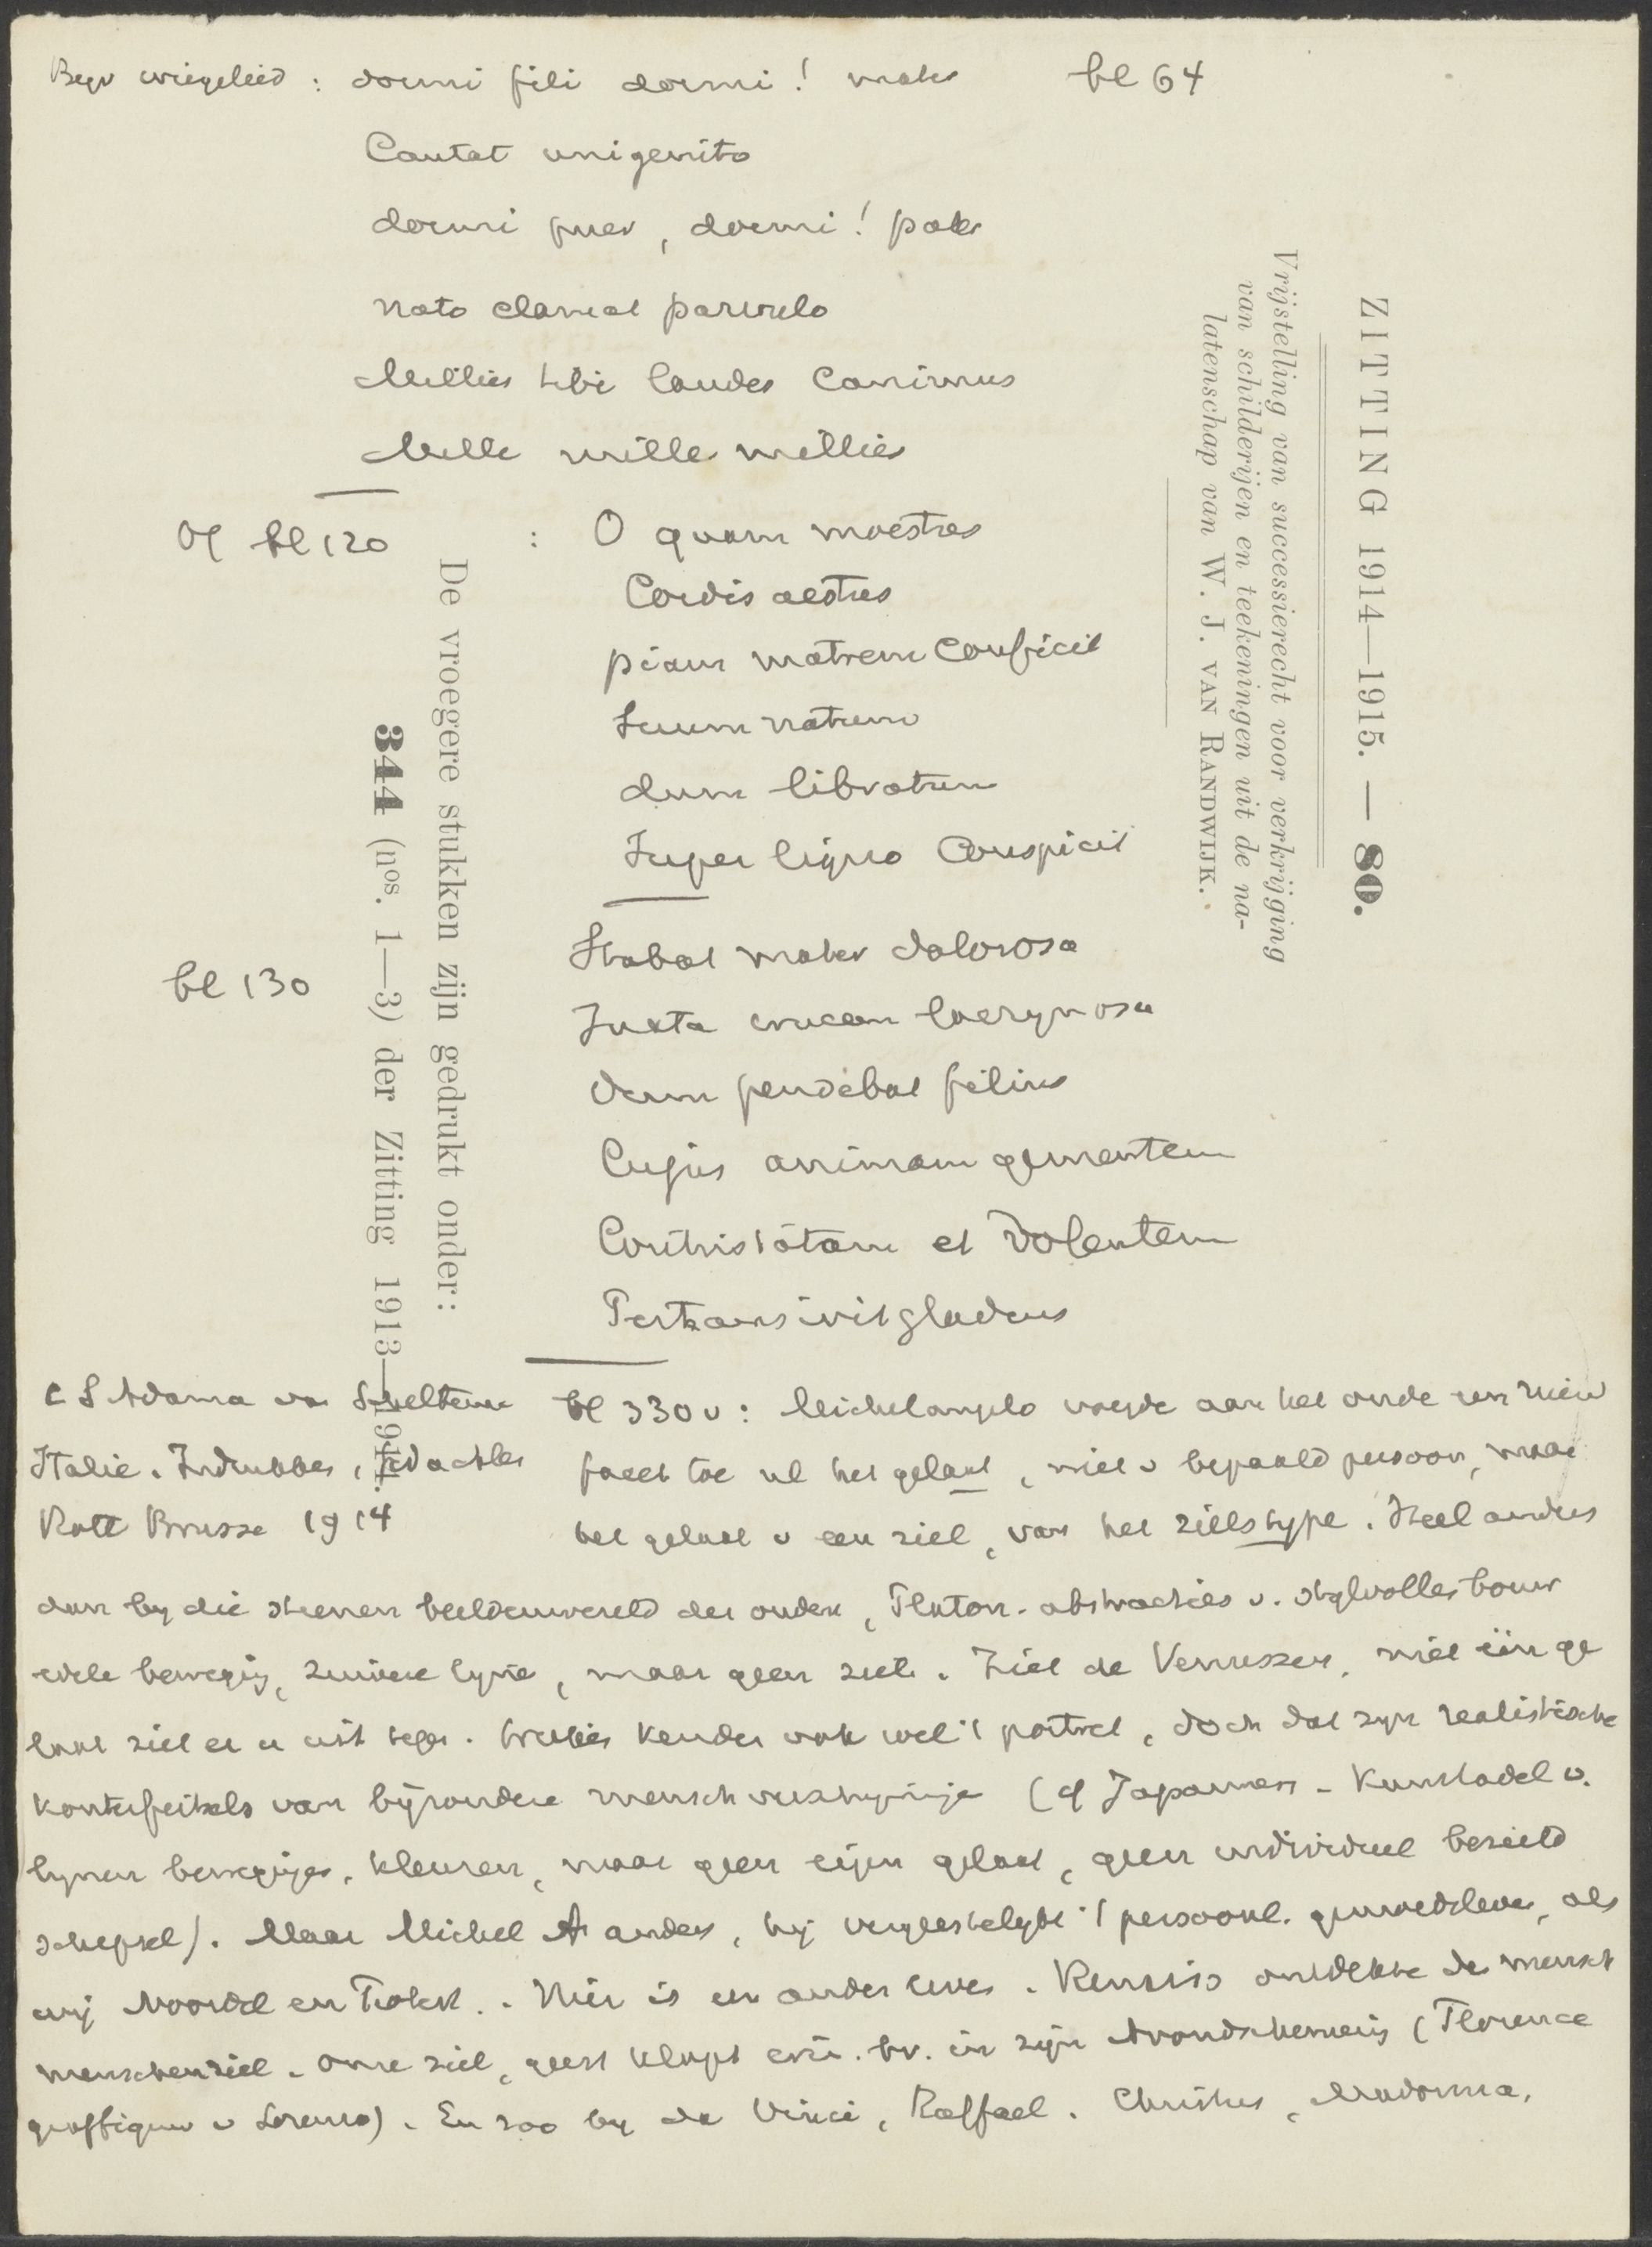 Bijv wiegelied : dormi fili dormi! mater bl 64
Cantat unigenito
dormi puer, dormi! pater
nato clamat parvulo
Millies tibi laudes canimus
Mille mille millies
Of bl 120 : O quam maestus
Cordis aestus
piam matrem conficit
Suum natum
dum libratum
Super ligno conspicit
bl 130 Stabat mater dolorosa
Juxta crucem lacrymosa
Dum pendebat filius
Cujus animam gementem
Contristatam et dolentem
Pertransivit gladius
C S Adama van Scheltema
Italie. Indrukken, Gedachten
Rott Brusse 1914
bl 330 v: Michelangelo voegde aan het oude een nieuw
facet toe nl het gelaat, niet v bepaald persoon, maar
het gelaat v een ziel, van het zielstype. Heel anders
dan by die steenen beeldenwereld der ouden, Pluton. abstracties v. stylvolle bouw
edele beweging, zuivere lynen, maar geen ziel. Ziet de Venussen, niet één ge
laat ziet er u uit tegen. kenden ook wel 't portret, doch dat zyn realistische
konterfeitsels van byzondere mensch (cf Japanners - Kunstadel v.
lynen bewegingen, kleuren, maar geen eigen gelaat, geen individueel bezield
schepsel). Maar Michel A anders, hy 't persoonl. gemoedsleven, als
wij Noordel en . Hier is een ander leven. Renaiss ontdekte de mensch
menschenziel. onze ziel, geest klopt erin. bv. in zijn Avondschemering (Florence
graffiguur v Lorenzo). En zoo by da Vinci, Raffael. Christus, Madonna.
ZITTING 1914—1915. — 80.
Vrijstelling van successierecht voor verkrijging
van schilderijen en teekeningen uit de na-
latenschap van W. J. VAN RANDWIJK.
De vroegere stukken zijn gedrukt onder:
344 (nos. 1—3) der Zitting 1913—1914.